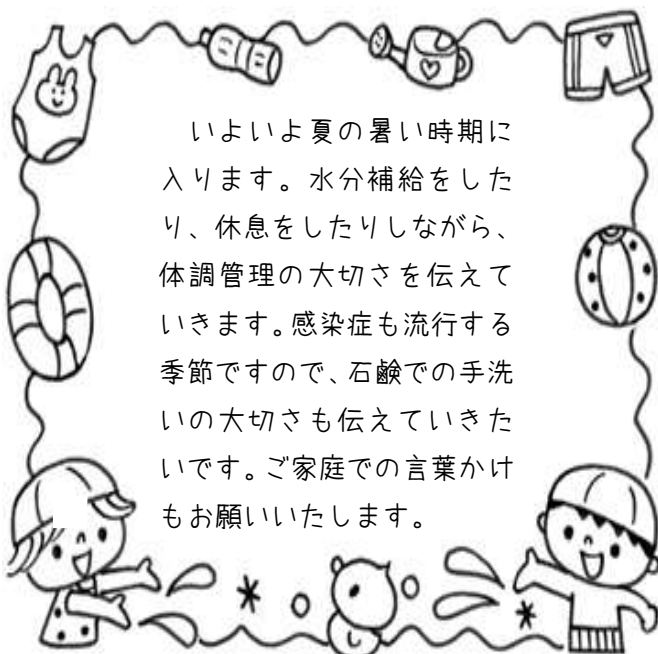 いよいよ夏の暑い時期に
入ります。水分補給をした
り、休息をしたりしながら、
体調管理の大切さを伝えて
いきます。感染症も流行する
季節ですので、石鹸での手洗
いの大切さも伝えていきた
いです。ご家庭での言葉かけ
もお願いいたします。